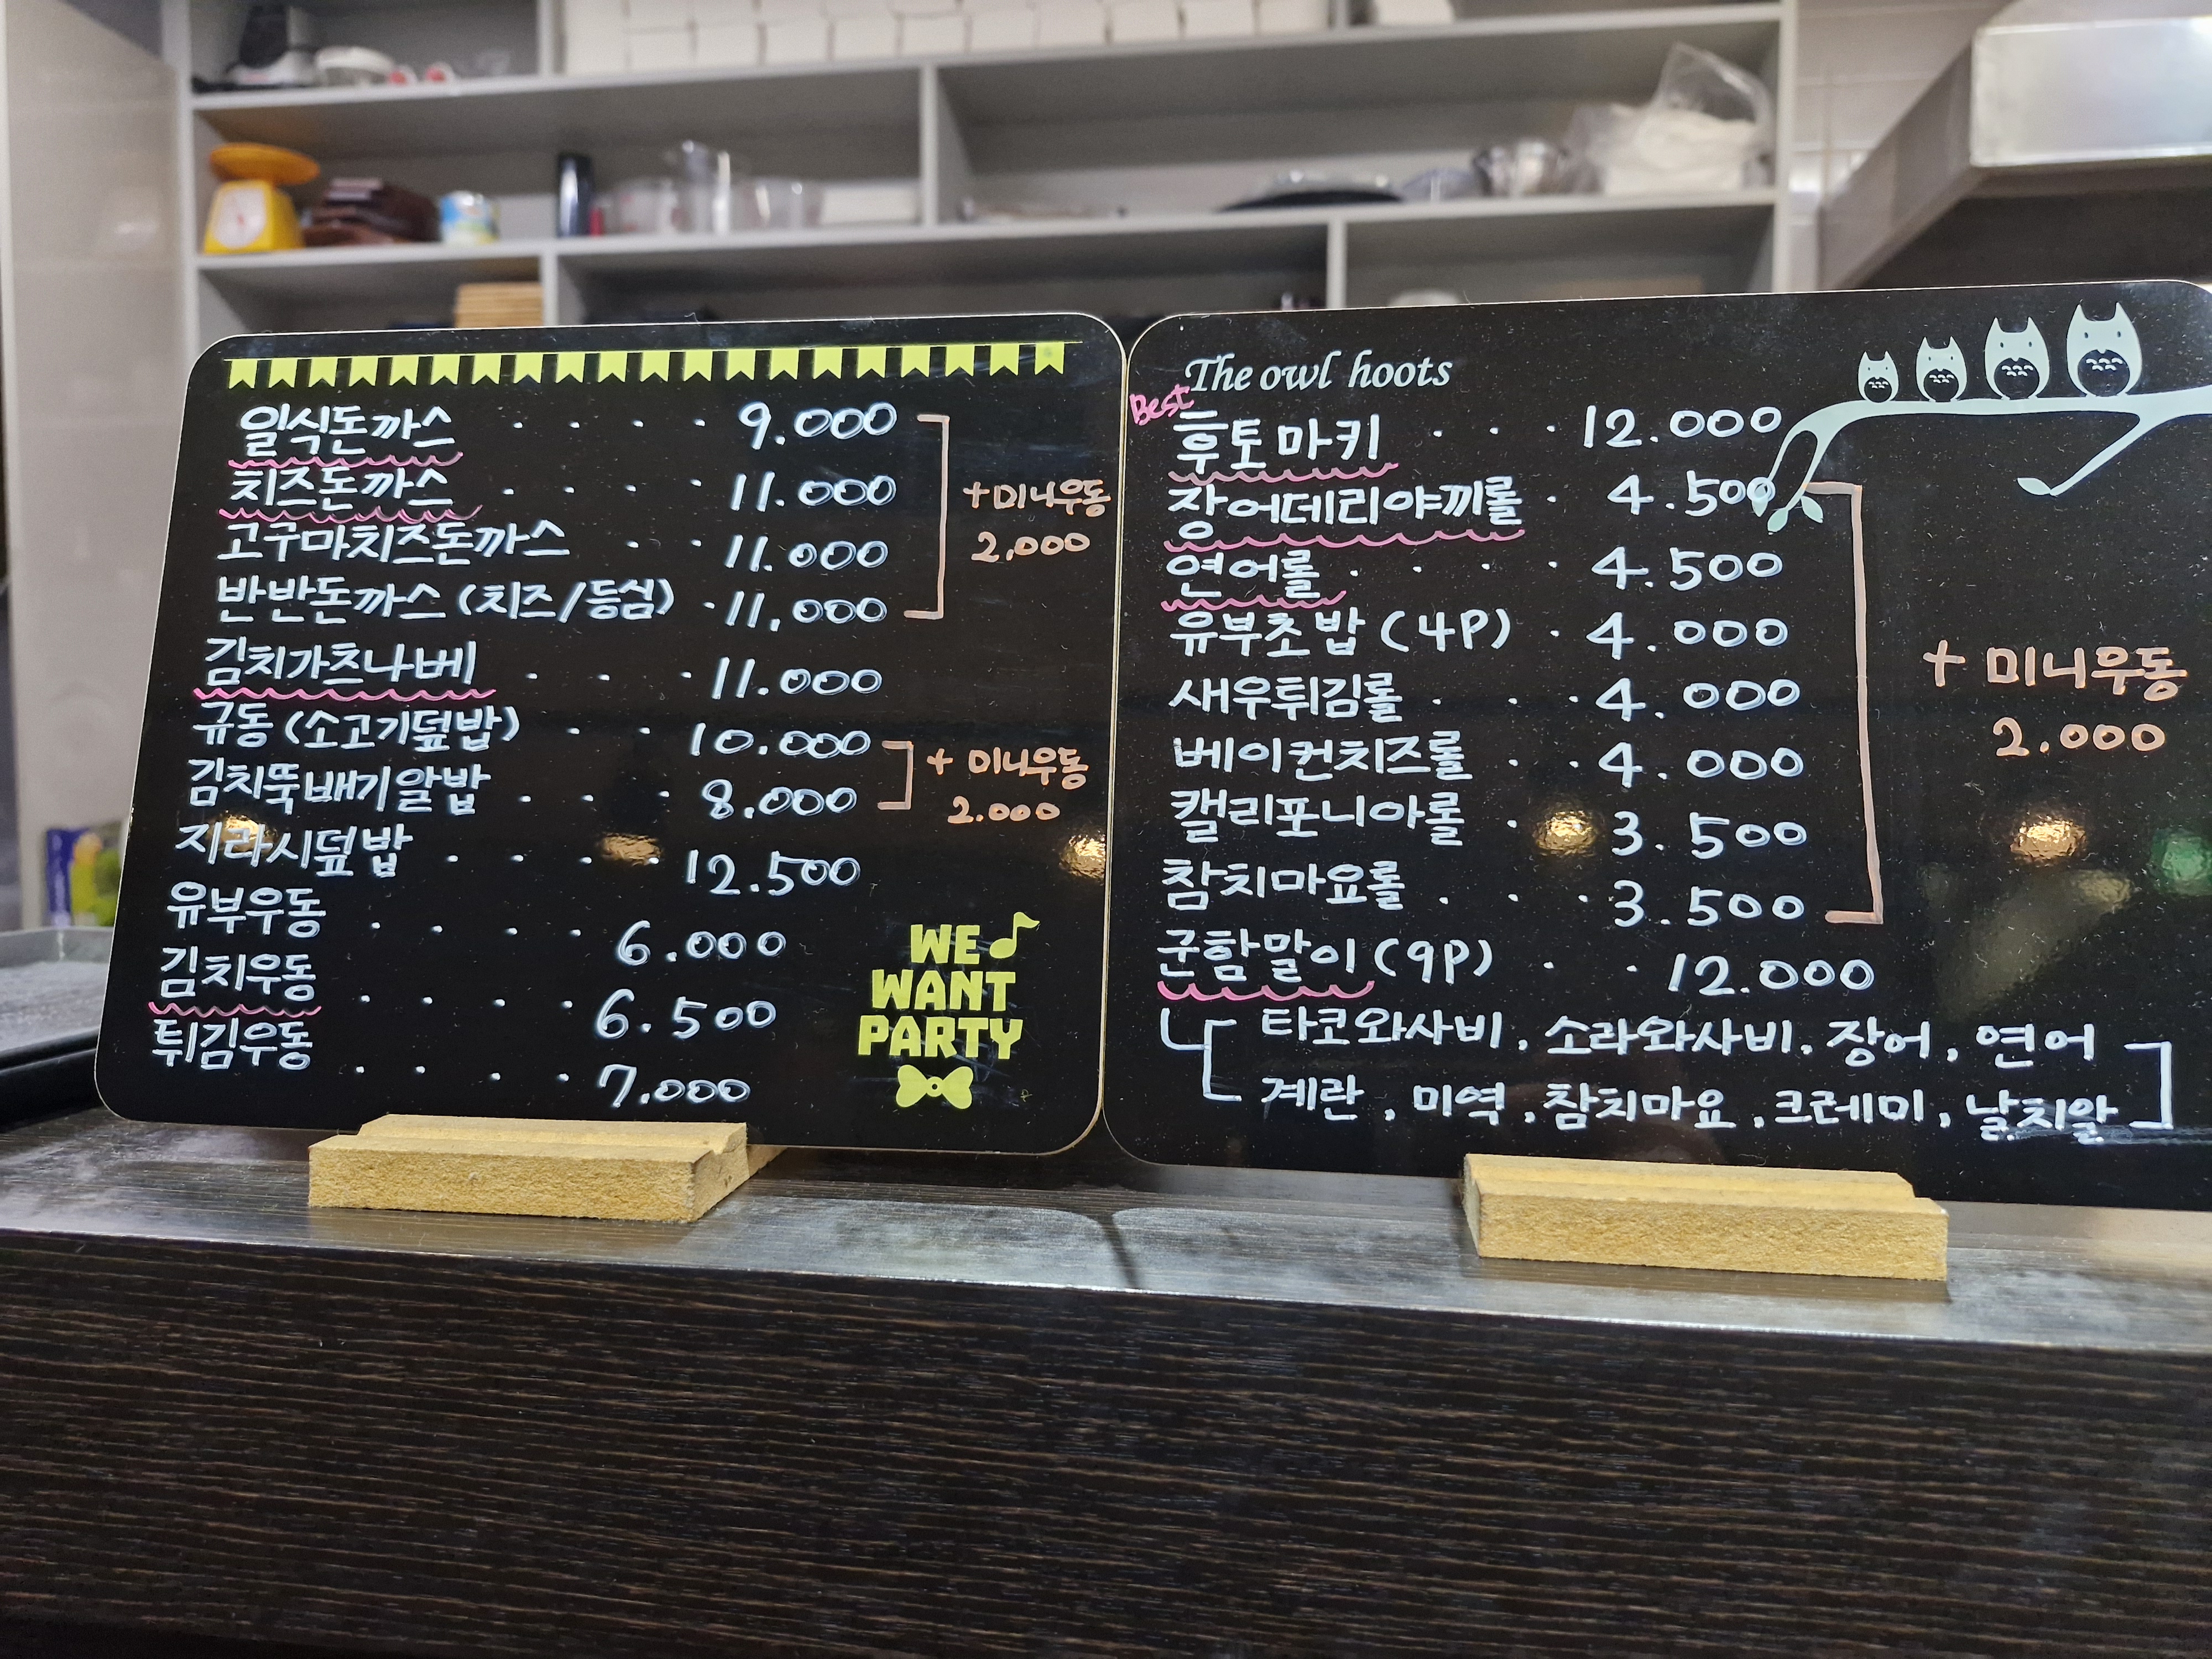 일식돈까스 · · · · 9.000
치즈돈까스 · · · · 11.000
고구마치즈돈까스 · · 11.000
반반돈까스 (치즈/등심) · 11.000
+ 미니우동
2.000
김치가츠나베 · · · 11.000
규동 (소고기덮밥) · · · 10.000
김치뚝배기알밥 · · · 8.000
+ 미니우동
2.000
지라시덮밥 · · · · 12.500
유부우동 · · · · 6.000
김치우동 · · · · 6.500
튀김우동 · · · · 7.000
WE
WANT
PARTY
The owl hoots
Best
후토마키 · · · 12.000
장어데리야끼롤 · 4.500
연어롤 · · · · 4.500
유부초밥 (4P) · 4.000
새우튀김롤 · · · 4.000
베이컨치즈롤 · · · 4.000
캘리포니아롤 · 3.500
참치마요롤 · · · 3.500
+ 미니우동
2.000
군함말이 (9P) · · 12.000
타코와사비, 소라와사비, 장어, 연어
계란, 미역, 참치마요, 크레미, 날치알